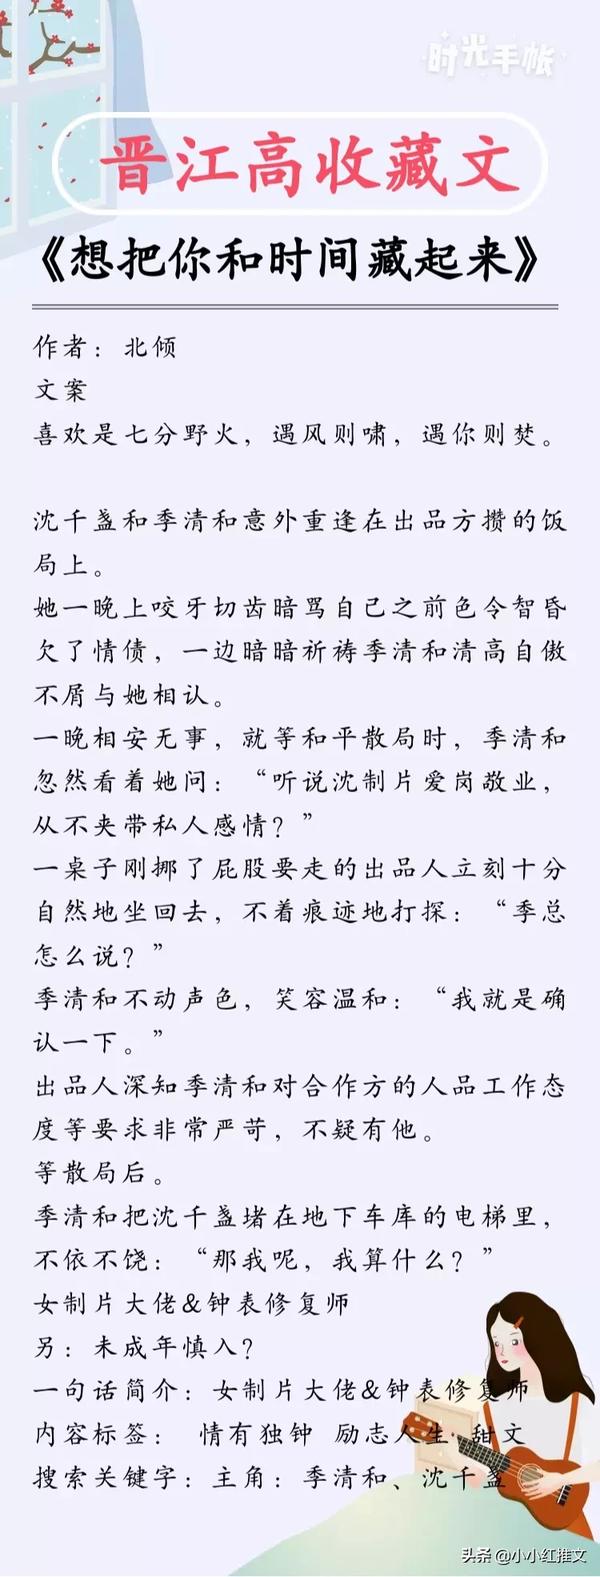 时光手帐
晋江高收藏文
《想把你和时间藏起来》
作者：北倾
文案
喜欢是七分野火，遇风则啸，遇你则焚。
沈千盏和季清和意外重逢在出品方攒的饭
局上。
她一晚上咬牙切齿暗骂自己之前色令智昏
欠了情债，一边暗暗祈祷季清和清高自傲
不屑与她相认。
一晚相安无事，就等和平散局时，季清和
忽然看着她问：“听说沈制片爱岗敬业，
从不夹带私人感情？”
一桌子刚挪了屁股要走的出品人立刻十分
自然地坐回去，不着痕迹地打探：“季总
怎么说？”
季清和不动声色，笑容温和：“我就是确
认一下。”
出品人深知季清和对合作方的人品工作态
度等要求非常严苛，不疑有他。
等散局后。
季清和把沈千盏堵在地下车库的电梯里，
不依不饶：“那我呢，我算什么？”
女制片大佬&钟表修复师
另：未成年慎入？
一句话简介：女制片大佬&钟表修复师
内容标签： 情有独钟 励志人生 甜文
搜索关键字：主角：季清和、沈千盏
头条 @小小红推文